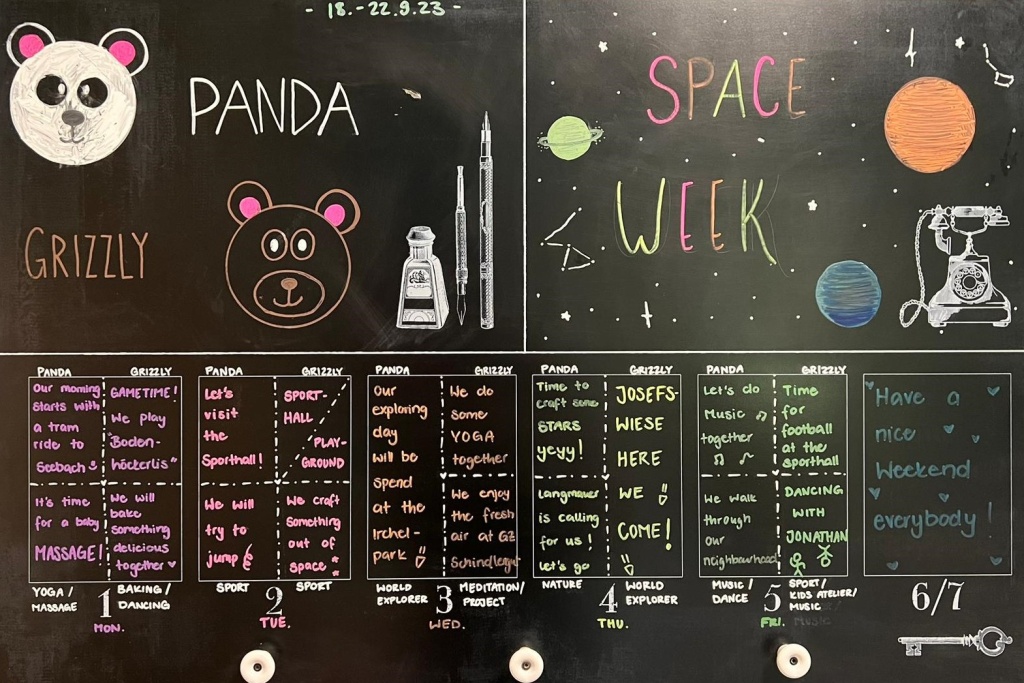 - 18.-22.9.23 -
PANDA
GRIZZLY
SPACE
WEEK
PANDA
GRIZZLY
Our morning
starts with
a tram
ride to
Seebach
GAMETIME!
We play
"Boden-
höckerlis"
It's time
for a baby
MASSAGE!
We will
bake
something
delicious
together
YOGA /
MASSAGE
1
BAKING /
DANCING
MON.
PANDA
GRIZZLY
Let's
visit
the
Sporthall!
SPORT-
HALL
PLAY-
GROUND
We will
try to
jump
We craft
something
out of
space
SPORT
2
SPORT
TUE.
PANDA
GRIZZLY
Our
exploring
day
will be
spend
at the
Irchel-
park
We do
some
YOGA
together
We enjoy
the fresh
air at GZ
Schindlergut
WORLD
EXPLORER
3
MEDITATION/
PROJECT
WED.
PANDA
GRIZZLY
Time to
craft some
STARS
yeyy!
Langmauer
is calling
for us!
Let's go
JOSEFS-
WIESE
HERE
WE
COME!
NATURE
4
WORLD
EXPLORER
THU.
PANDA
GRIZZLY
Let's do
Music
together
Time
for
football
at the
sporthall
We walk
through
our
neighbourhead
DANCING
WITH
JONATHAN
MUSIC /
DANCE
5
SPORT /
KIDS ATELIER/
MUSIC
FRI.
Music
Have a
nice
Weekend
everybody!
6/7